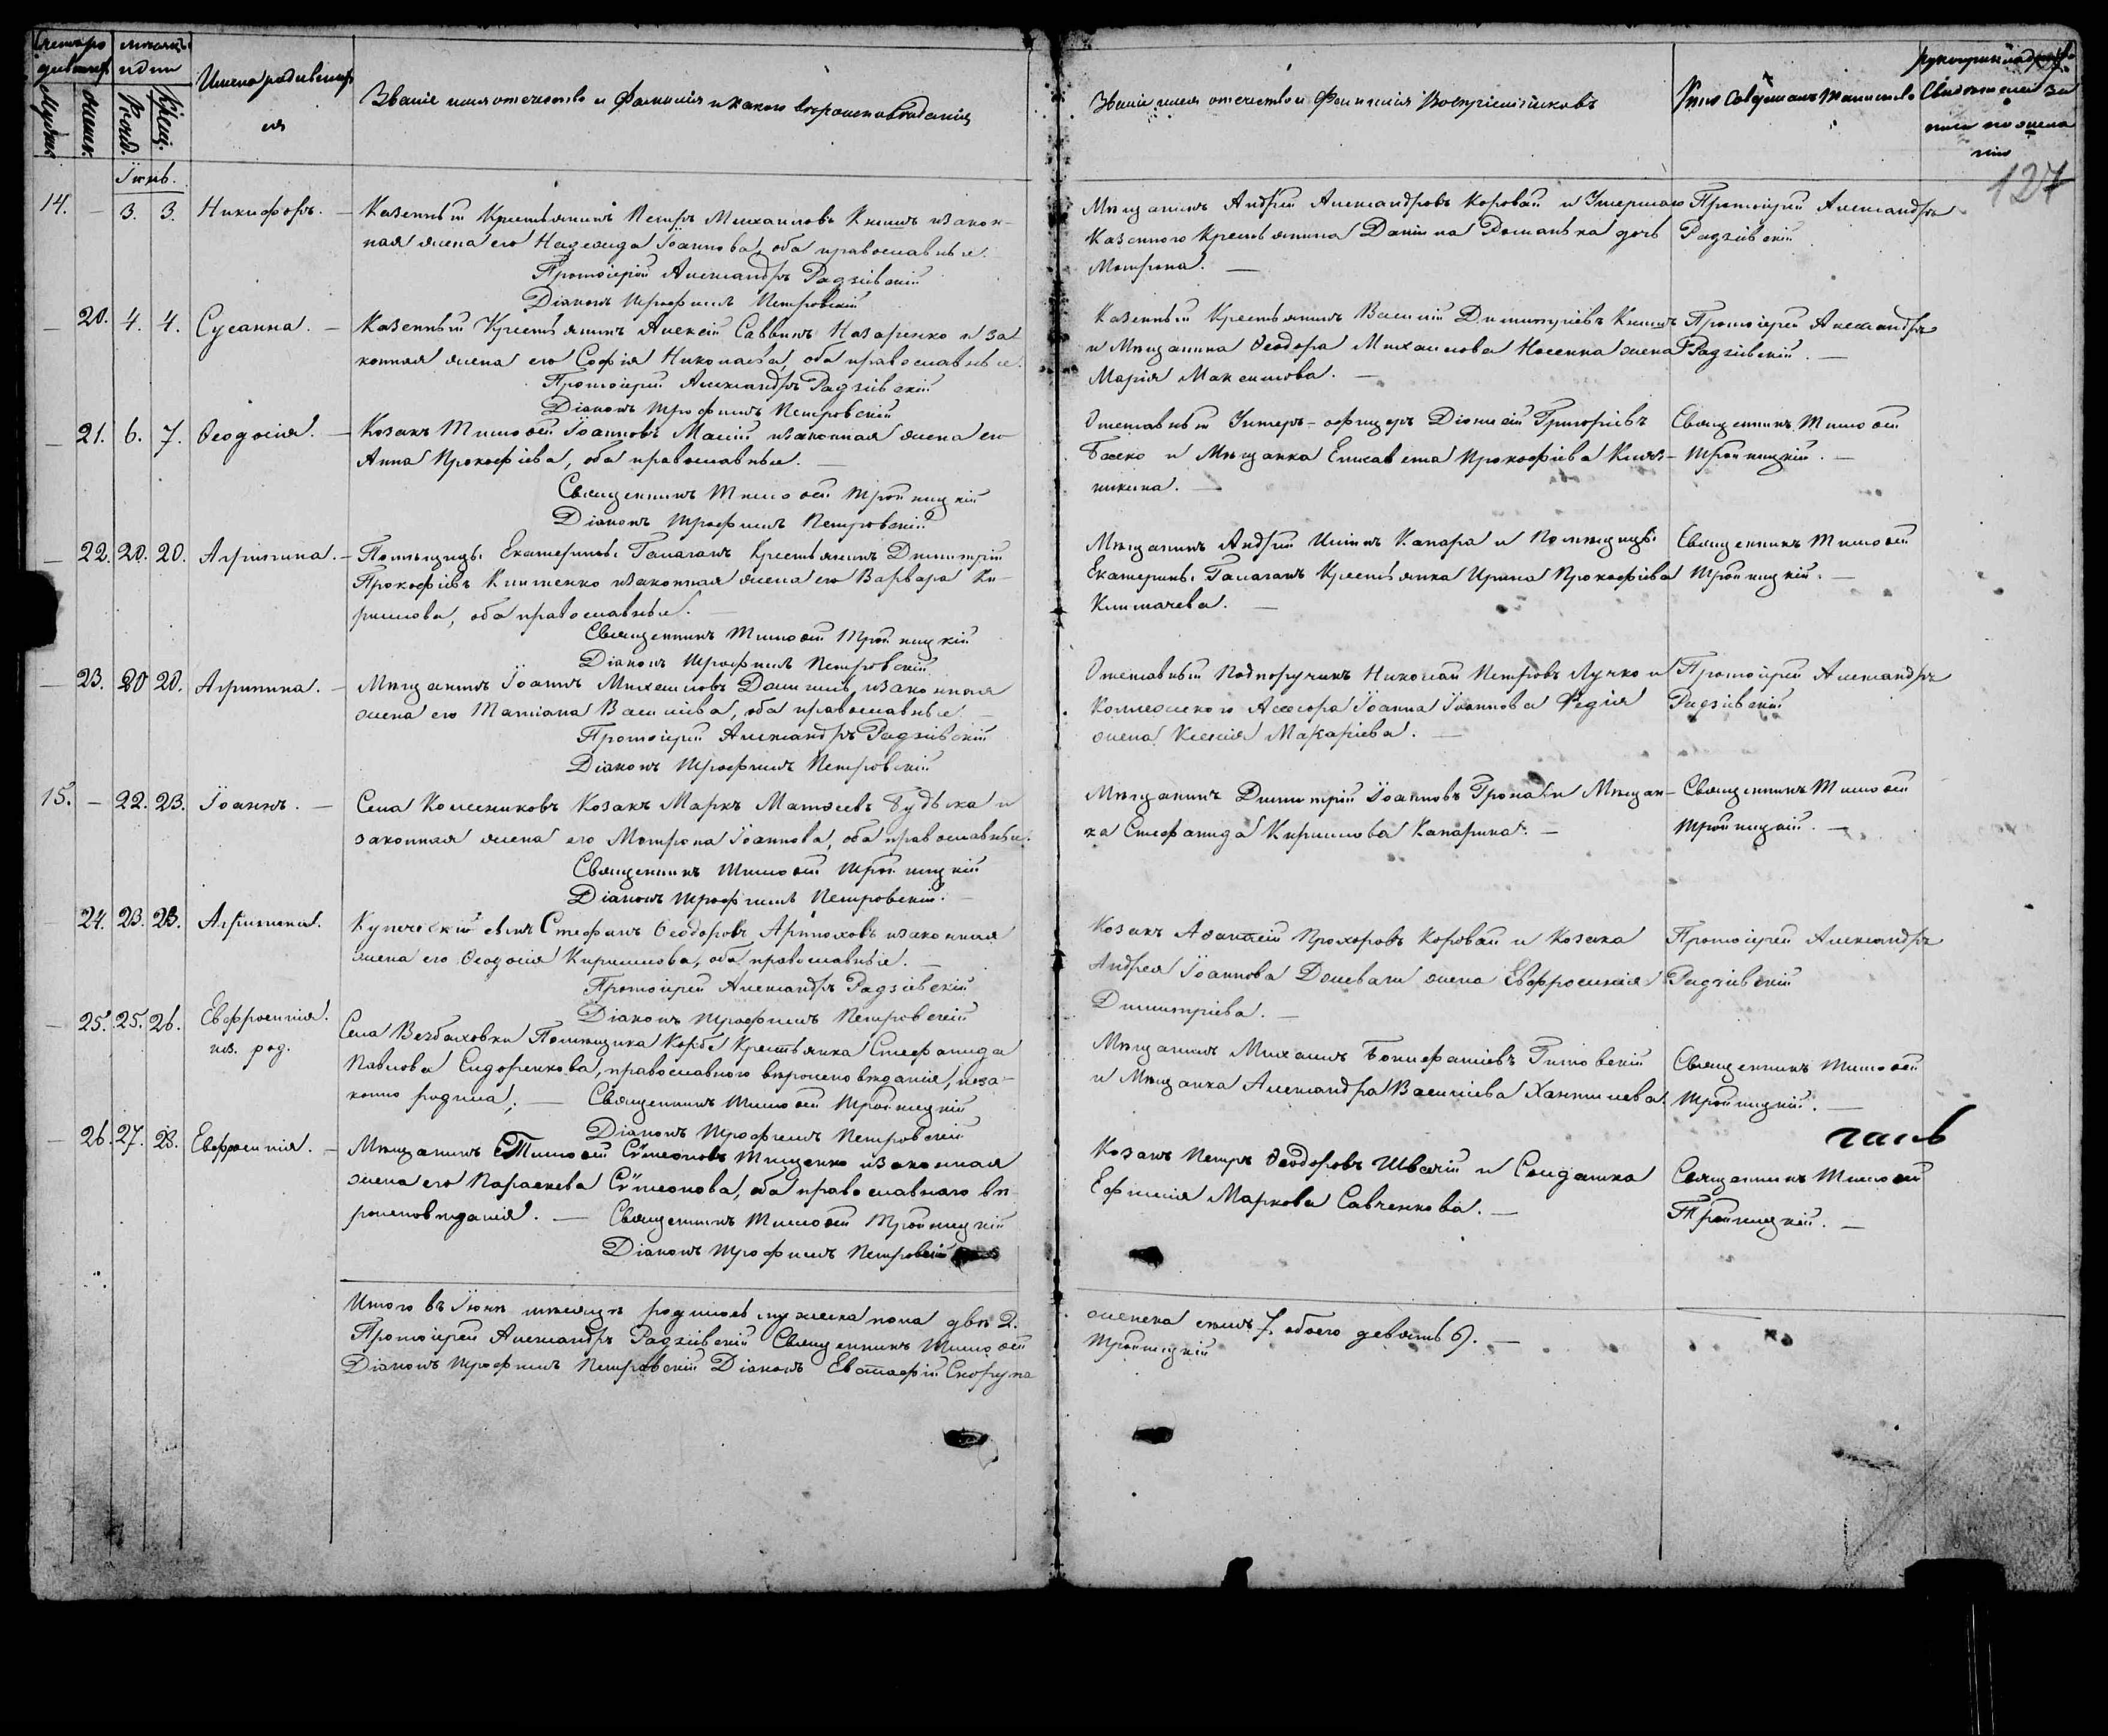 Счетъ ро
дившихся
Мужск.
Женск.
мѣсяцъ
и дни
Рожд.
Крещ.
Имена родивших
ся
Званіе имя отечество и фамилія и какого вѣроисповѣданія
Званіе имя отечество и фамилія Воспріемниковъ
Кто совершалъ таинство
Свидѣтелей за
писи по жела
нію
127
Іюнь.
14. — 3. 3. Никифоръ. —
Казенный Крестьянинъ Петръ Михаиловъ Книшъ и закон-
ная жена его Надежда Іоаннова, оба православные.
Протоіерей Александръ Радзіевскій
Діаконъ Трофимъ Петровскій
Мѣщанинъ Андрей Александровъ Коровай и Умершаго
Казенного Крестьянина Даніила Романька дочь
Матрона. —
Протоіерей Александръ
Радзіевскій
— 20. 4. 4. Сусанна. —
Казенный Крестьянинъ Алексій Саввинъ Назаренко и за
конная жена его Софія Николаева, оба православные.
Протоіерей Александръ Радзіевскій
Діаконъ Трофимъ Петровскій
Казенный Крестьянинъ Василій Димитріевъ Книшъ
и Мѣщанина Ѳеодора Михаилова Носенка жена
Марія Максимова. —
Протоіерей Александръ
Радзіевскій. —
— 21. 6. 7. Ѳеодосія. —
Козакъ Тимоѳей Іоанновъ Малій и законная жена его
Анна Прокофіева, оба православные. —
Священникъ Тимоѳей Тройницкій
Діаконъ Трофимъ Петровскій
Отставный Унтеръ-офицеръ Діонисій Григоріевъ
и Мѣщанка Елисавета Прокофіева
Священникъ Тимоѳей
Тройницкій. —
— 22. 20. 20. Агрипина. —
Помѣщицы Екатерины Галаганъ Крестьянинъ Димитрій
Прокофіевъ Клименко и законная жена его Варвара Ки-
рилова, оба православные. —
Священникъ Тимоѳей Тройницкій
Діаконъ Трофимъ Петровскій
Мѣщанинъ Андрей Ильинъ Капара и Помѣщицы
Екатерины Галаганъ Крестьянка Ирина Прокофіева
—
Священникъ Тимоѳей
Тройницкій. —
— 23. 20 20. Агрипина. —
Мѣщанинъ Іоаннъ Михаиловъ и законная
жена его Татіана Василіева, оба православные —
Протоіерей Александръ Радзіевскій
Діаконъ Трофимъ Петровскій
Отставный Подпоручикъ Николай Петровъ Лучко и
Коллежского Ассесора Іоанна Іоаннова Федія
жена Ксенія Макаріева. —
Протоіерей Александръ
Радзіевскій
15. — 22. 23. Іоаннъ. —
Села Колесниковъ Козакъ Маркъ Матѳеевъ Будька и
законная жена его Матрона Іоаннова, оба православные.
Священникъ Тимоѳей Тройницкій
Діаконъ Трофимъ Петровскій. —
Мѣщанинъ Димитрій Іоанновъ и Мѣщан-
ка Стефанида Кирилова Капарина. —
Священникъ Тимоѳей
Тройницкій. —
24. 23. 23. Агрипина.
Купеческій сынъ Стефанъ Ѳеодоровъ и законная
жена его Ѳеодосія Кирилова, оба православные. —
Протоіерей Александръ Радзіевскій
Діаконъ Трофимъ Петровскій
Козакъ Аѳанасій Прохоровъ Коровай и Козака
Андрея Іоаннова жена Евфросинія
Димитріева. —
Протоіерей Александръ
Радзіевскій
— 25. 25. 26. Евфросинія.
нез. род.
Села Безбаховки Помѣщика Корбе Крестьянка Стефанида
Павлова Сидоренкова, православного вѣроисповѣданія, неза-
конно родила; — Священникъ Тимоѳей Тройницкій
Діаконъ Трофимъ Петровскій
Мѣщанинъ Михаилъ Бонифатіевъ
и Мѣщанка Александра Василіева
Священникъ Тимоѳей
Тройницкій. —
— 26. 27. 28. Евфросинія. —
Мѣщанинъ Тимоѳей Сѵмеоновъ Тищенко и законная
жена его Параскева Сѵмеонова, оба православного вѣ-
роисповѣданія. — Священникъ Тимоѳей Тройницкій
Діаконъ Трофимъ Петровскій
Козакъ Петръ Ѳеодоровъ Швачій и Солдатка
Ефимія Маркова Савченкова. —
Священникъ Тимоѳей
Тройницкій. —
Итого въ Іюнѣ мѣсяцѣ родилось мужеска пола два 2.
женска семь 7. обоего девять 9. —
Протоіерей Александръ Радзіевскій Священникъ Тимоѳей
Тройницкій
Діаконъ Трофимъ Петровскій Діаконъ Евстафій Скорупа